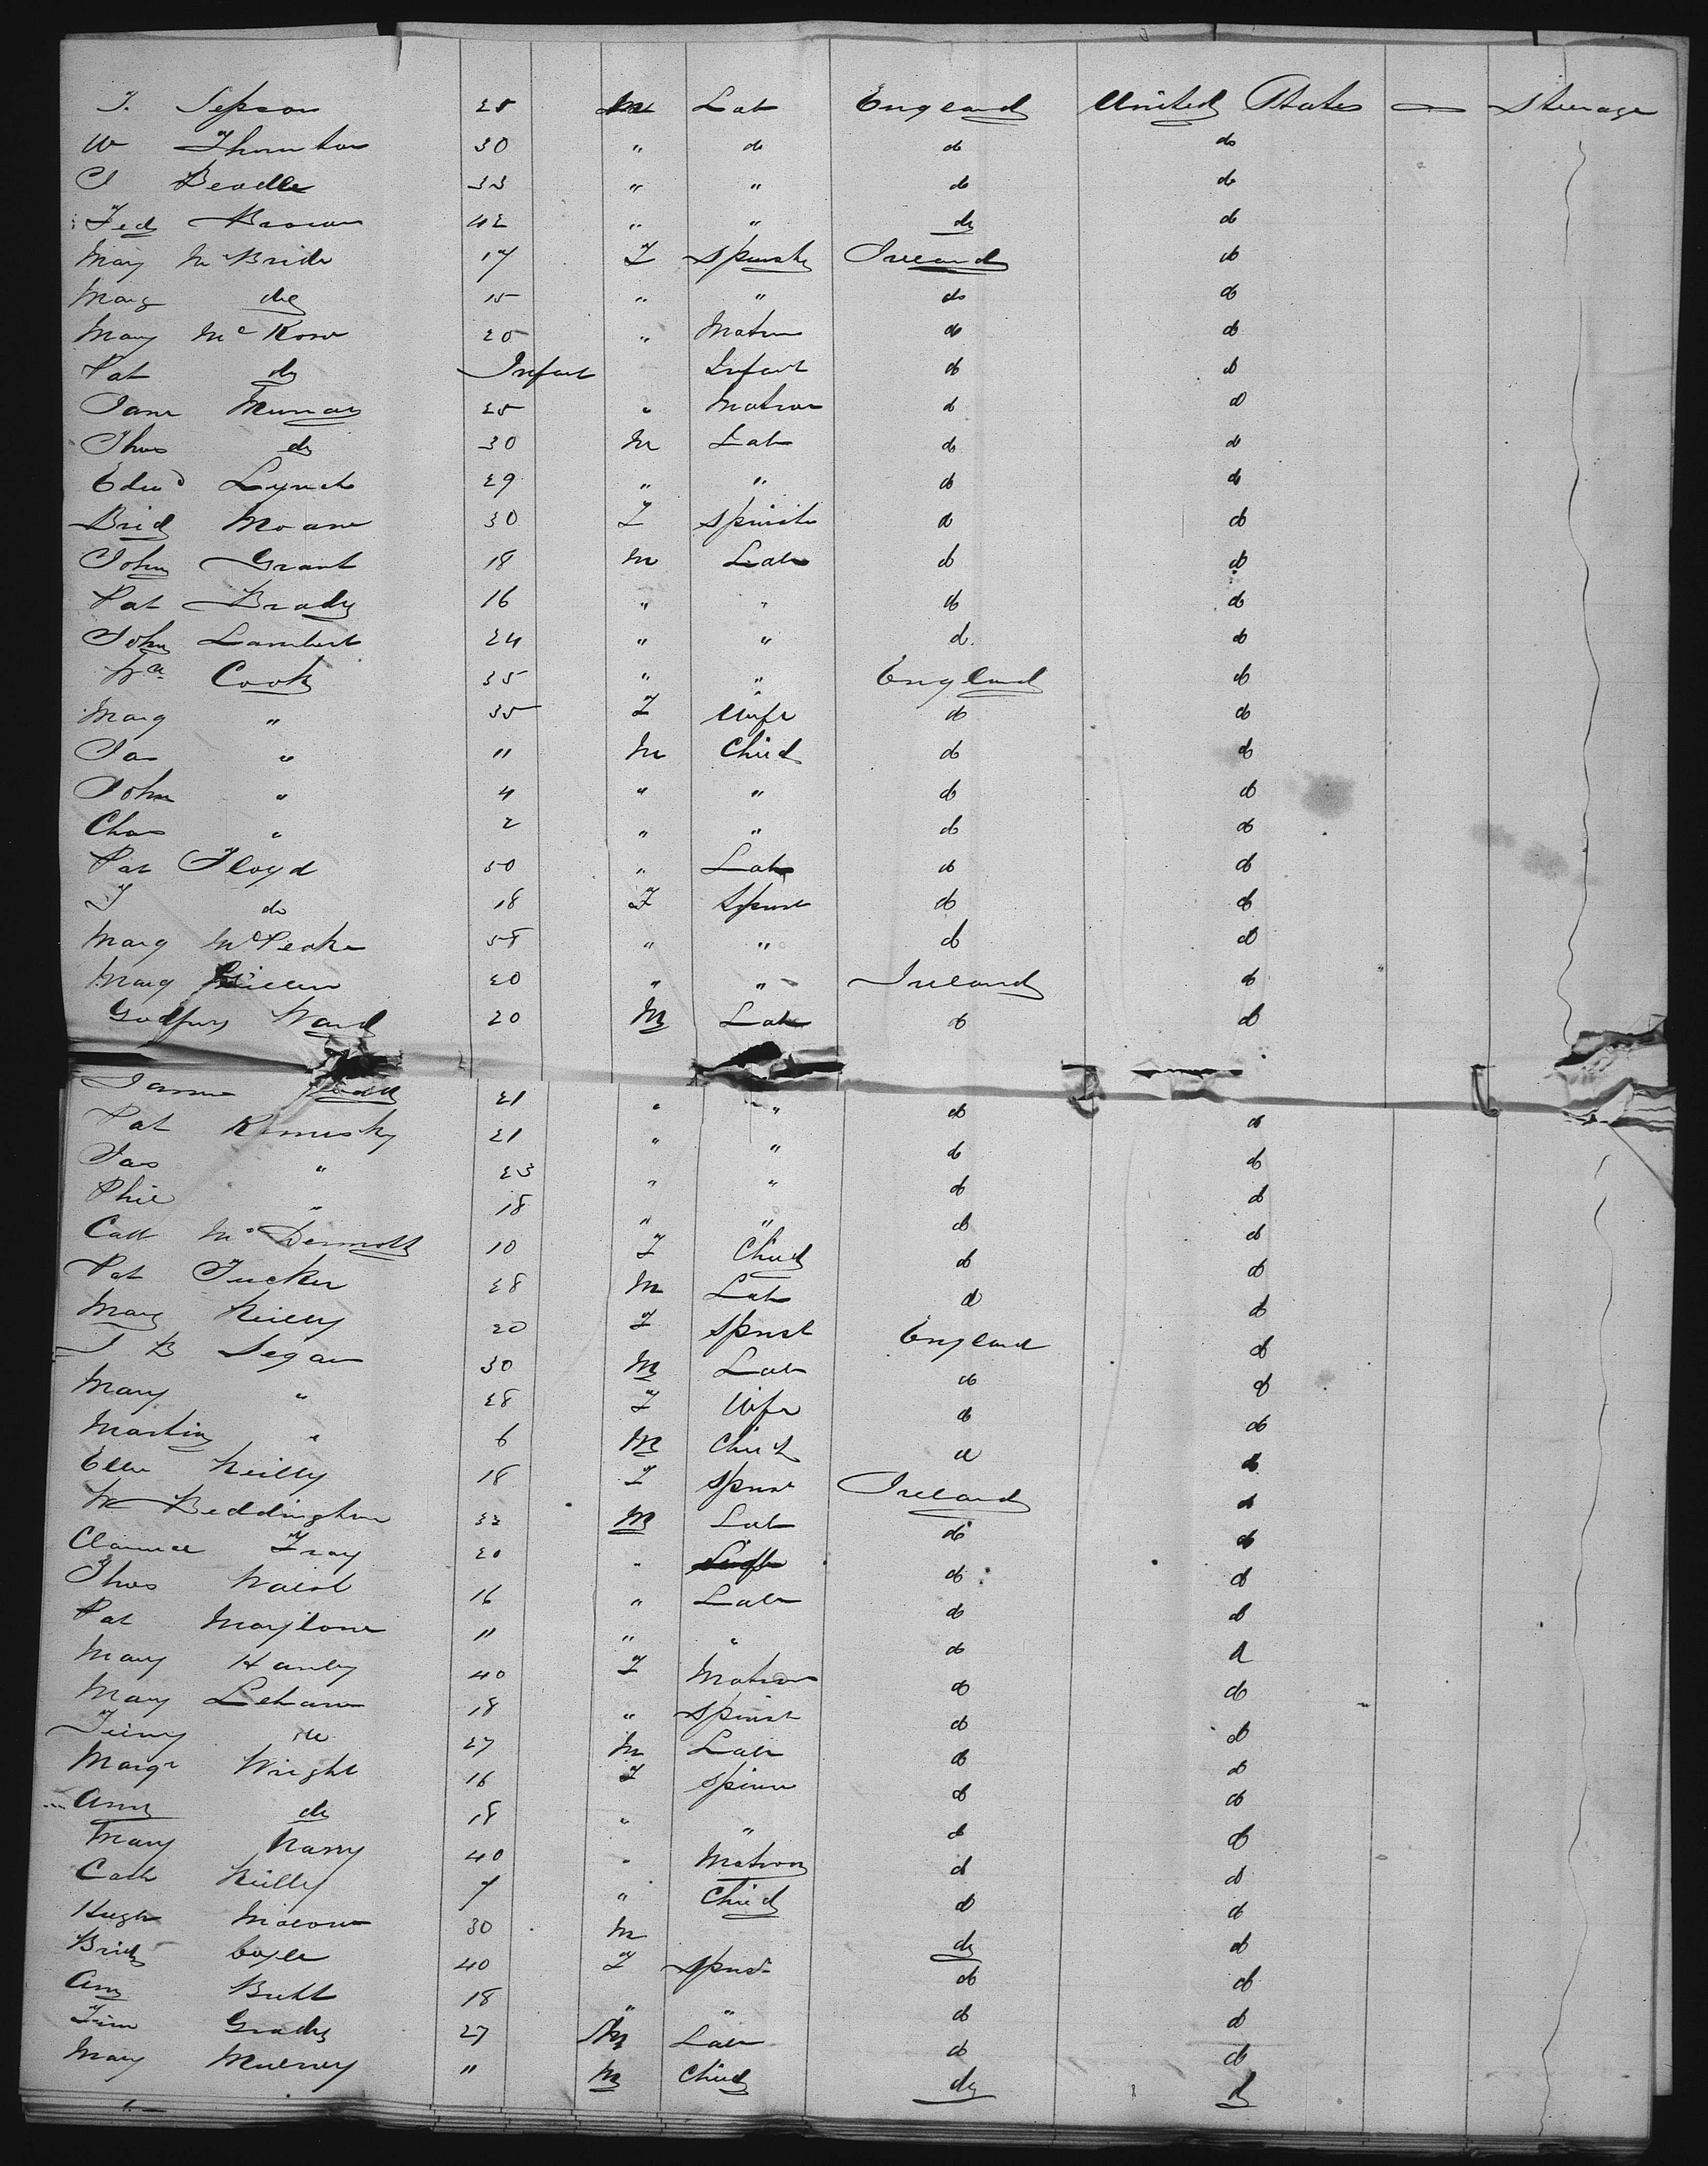 T. Jepson 25 M Lab England United States — Steerage
W Thornton 30 " do do do
J Beadle 33 " " do do
Fed Brown 42 " " do do
Mary McBride 17 F Spinster Ireland do
Marg do 15 " " do do
Mary McKow 20 " Matron do do
Pat do Infant Infant do do
Jane Murray 25 " Matron do do
Thos do 30 M Lab do do
Edwd Lynch 29 " " do do
Brid Moane 30 F Spinster do do
John Grant 18 M Lab do do
Pat Brady 16 " " do do
John Lambert 24 " " do do
Wm Cook 35 " " England do
Marg " 35 F Wife do do
Jas " 11 M Child do do
John " 4 " " do do
Chas " 2 " " do do
Pat Floyd 50 " Lab do do
T do 18 F Spinst do do
Marg McPeake 58 " " do do
Marg 20 " " Ireland do
Godfrey Ward 20 M Lab do do
James 21 " " do do
Pat 21 " " do do
Jas " 23 " " do do
Phil " 18 " " do do
Cath McDermott 10 F Child do do
Pat Tucker 28 M Lab do do
Mary Reilly 20 F Spinst England do
J B Segar 30 M Lab do do
Mary " 28 F Wife do do
Martin " 6 M Child do do
Ellen Reilly 18 F Spinst Ireland do
W Beddingham 32 M Lab do do
Clarence Gray 20 " do do
Thos Walsh 16 " Lab do do
Pat 11 " " do do
Mary Hanley 40 F Matron do do
Mary Lehane 18 " Spinst do do
do 27 M Lab do do
Margt Wright 16 F Spinst do do
Ann do 18 " " do do
Mary Harry 40 " Matron do do
Cath Reilly 7 " Child do do
Hugh Malone 30 M do do
Bridt Coyle 40 F Spinst do do
Ann Butt 18 " " do do
Tim Grady 27 M Lab do do
Mary Mulvey 11 M Child do do